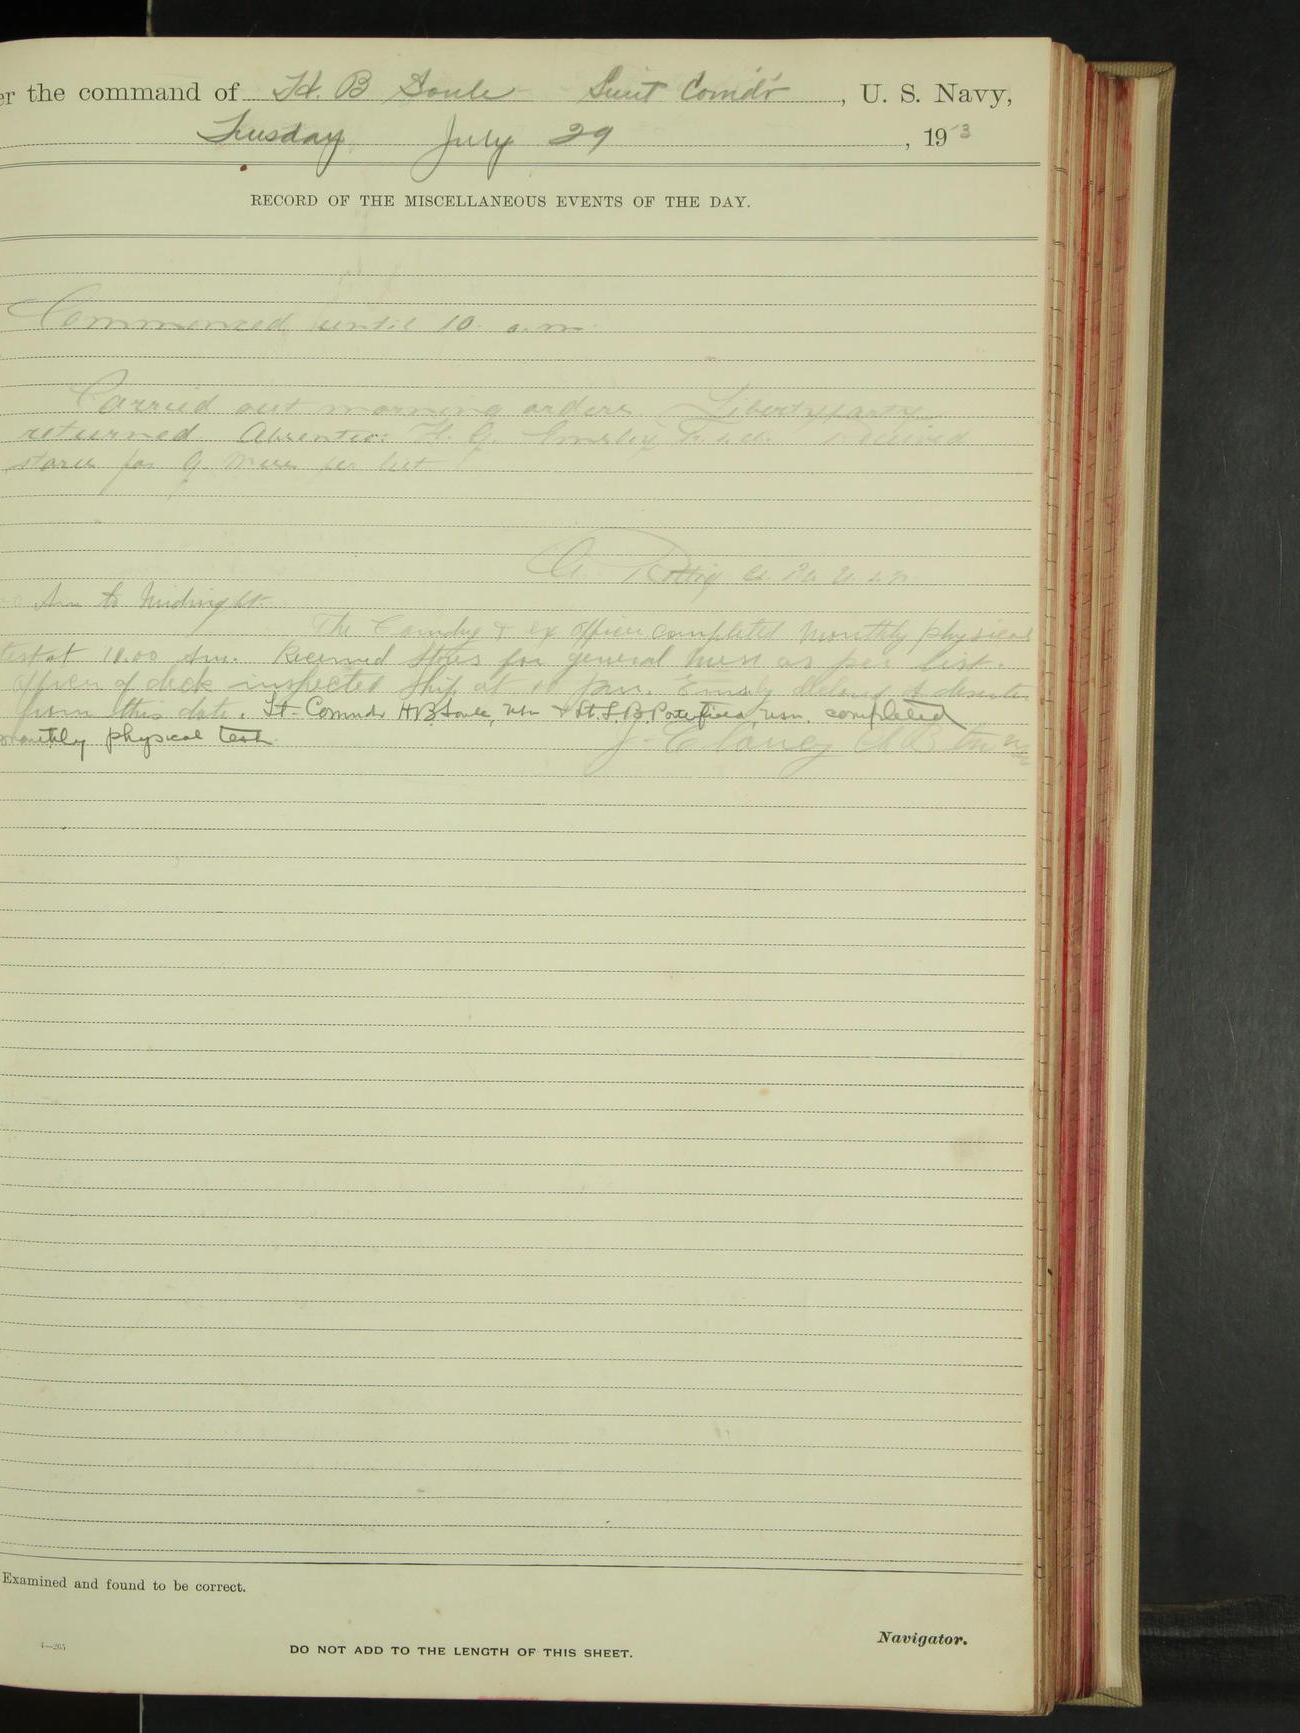 er the command of H. B Soule Lieut Comd'r, U. S. Navy,
Tuesday July 29, 1913
RECORD OF THE MISCELLANEOUS EVENTS OF THE DAY.
Commenced until 10 a.m.
Carried out morning orders Liberty party
returned. Absentee: H. G. received
stores for G. Mess per list
A
Am to Midnight.
The Comdg & Ex officer completed monthly physical
test at 10.00 Am. Received stores for general mess as per list.
Officer of deck inspected ship at Emsley declared a deserter
from this date. Lt-Comndr H B Soule, usn & Lt. L B Porterfield, usn. completed
monthly physical test.
Examined and found to be correct.
4—265
DO NOT ADD TO THE LENGTH OF THIS SHEET.
Navigator.